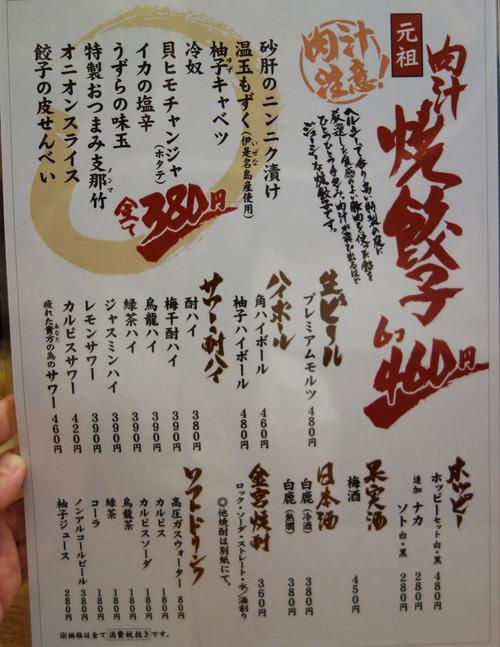 元祖
肉汁
焼餃子
6コ
460円
肉汁
注意!
砂肝のニンニク漬け
温玉もずく(伊是名島産使用)
いぜな
柚子キャベツ
ゆず
冷奴
貝ヒモチャンジャ
(ホタテ)
イカの塩辛
うずらの味玉
特製おつまみ支那竹
メンマ
オニオンスライス
餃子の皮せんべい
全て380円
生ビール
プレミアムモルツ 480円
ハイボール
角ハイボール 460円
柚子ハイボール 480円
サワー・酎ハイ
酎ハイ 380円
梅干酎ハイ 390円
烏龍ハイ 390円
緑茶ハイ 390円
ジャスミンハイ 390円
レモンサワー 390円
カルピスサワー 420円
疲れた貴方の為のサワー 460円
あなた
ホッピー
ホッピーセット白・黒 480円
追加 ナカ 280円
ソト白・黒 280円
果実酒
梅酒 450円
日本酒
白鹿(冷酒) 380円
白鹿(熱燗) 380円
金宮焼酎
360円
ロック・ソーダ・ストレート・水/湯割り
◎他焼酎は別紙にて。
ソフトドリンク
高圧ガスウォーター 80円
カルピス 180円
カルピスソーダ 180円
烏龍茶 180円
緑茶 180円
コーラ 180円
ノンアルコールビール 380円
柚子ジュース 280円
※価格は全て消費税抜きです。